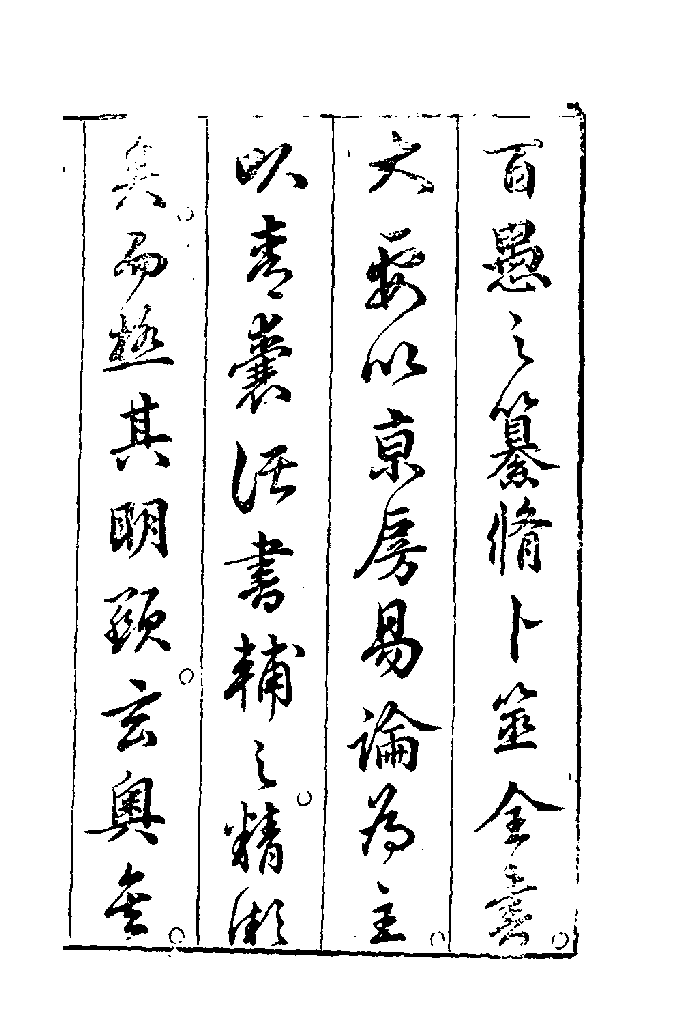 百愚之纂脩卜筮全書
大要以京房易論為主
以青囊諸書輔之精微
矣而極其明顯玄奧矣